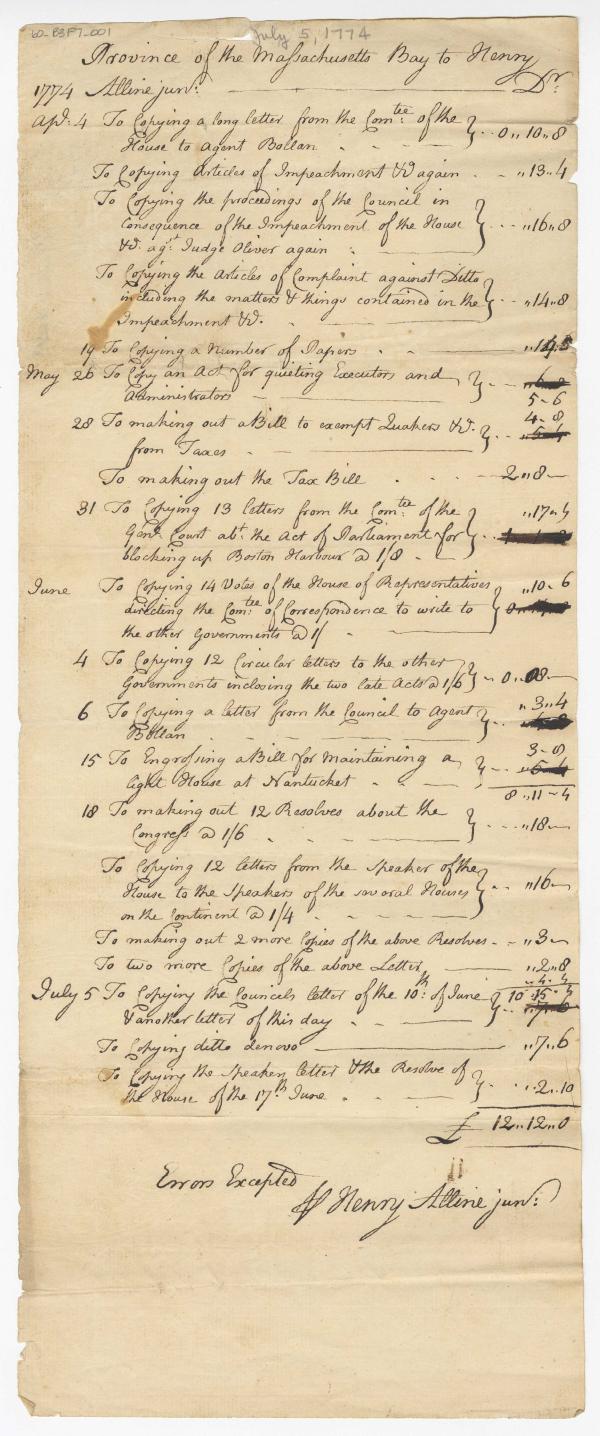 60-B3F7-001
July 5, 1774
Province of the Massachusetts Bay to Henry
1774 Alline junr. Dr.
Apl. 4 To Copying a long letter from the Comtee. of the
House to Agent Bollan 0,,10,,8
To Copying Articles of Impeachment &c again ,,13,,4
To Copying the proceedings of the Council in
Consequence of the Impeachment of the House ,,16,,8
&c. agt. Judge Oliver again
To Copying the Articles of Complaint against Ditto
including the matters & things contained in the ,,14,,8
Impeachment &c.
19 To Copying a Number of Papers
May 26 To Copy an Act for quieting Executors and
Administrators 5-6
28 To making out a Bill to exempt Quakers &c. 4-8
from Taxes
To making out the Tax Bill 2,,8-
31 To Copying 13 letters from the Comtee. of the ,,17-4
Genl. Court abt. the Act of Parliament for
blocking up Boston Harbour @ 1/8
June To Copying 14 Votes of the House of Representatives ,,10-6
directing the Comtee. of Correspondence to write to
the other Governments @ 1/
4 To Copying 12 Circular letters to the other
Governments inclosing the two late Acts @ 1/6
6 To Copying a letter from the Council to Agent ,,3,,4
Bollan
15 To Engrossing a Bill for Maintaining a 3-0
light House at Nantucket
8,,11-4
18 To making out 12 Resolves about the
Congress @ 1/6 ,,18-
To Copying 12 letters from the Speaker of the
House to the Speakers of the several Houses ,,16-
on the Continent @ 1/4
To making out 2 more Copies of the above Resolves ,,3-
To two more Copies of the above Letter ,,2,,8
July 5 To Copying the Councils letter of the 10th. of June
& another letter of this day
To Copying ditto denovo ,,7,,6
To Copying the Speakers letter & the Resolve of
the House of the 17th June ,,2,,10
£ 12,,12,,0
Errors Excepted
Henry Alline junr: